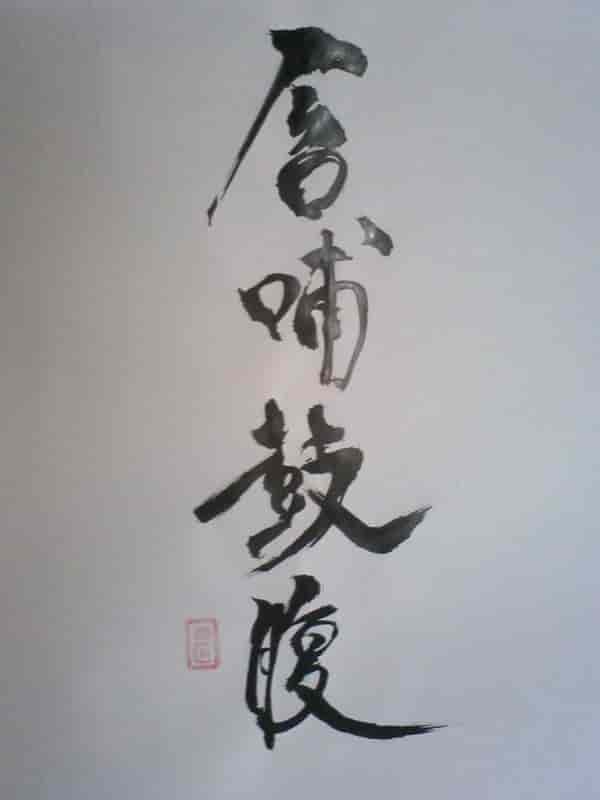 含哺鼓腹